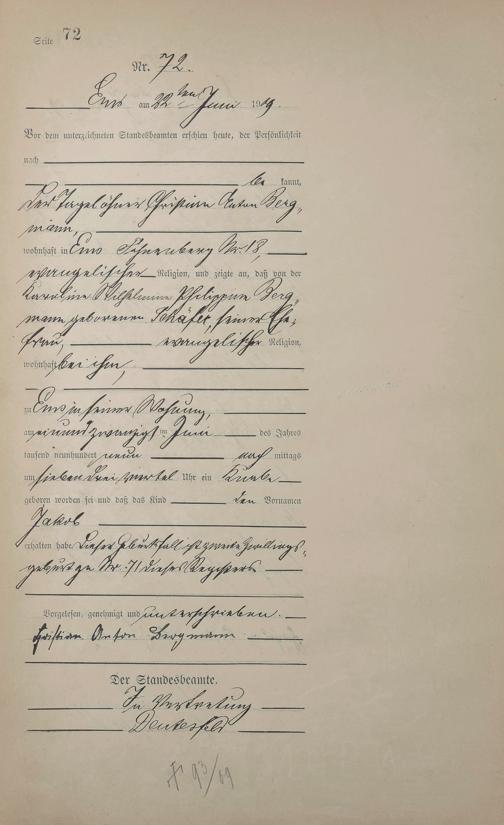 Seite 72
Nr. 72.
Ems am 22ten Juni 1909.
Vor dem unterzeichneten Standesbeamten erschien heute, der Persönlichkeit
nach
be kannt,
der Tagelöhner Christian Anton Berg-
mann,
wohnhaft in Ems Nr. 18,
evangelischer Religion, und zeigte an, daß von der
Karoline Wilhelmine Philippine Berg-
mann geborenen Schäfer, seiner Ehe-
frau, evangelischer Religion,
wohnhaft bei ihm,
zu Ems in seiner Wohnung,
am einundzwanzigsten Juni des Jahres
tausend neunhundert neun nach mittags
um sieben drei viertel Uhr ein Knabe
geboren worden sei und daß das Kind den Vornamen
Jakob
erhalten habe. Dieser Geburtsfall ist zweite Zwillings-
geburt zu Nr. 71 dieses Registers
Vorgelesen, genehmigt und unterschrieben.
Christian Anton Bergmann
Der Standesbeamte.
In Vertretung
93/09